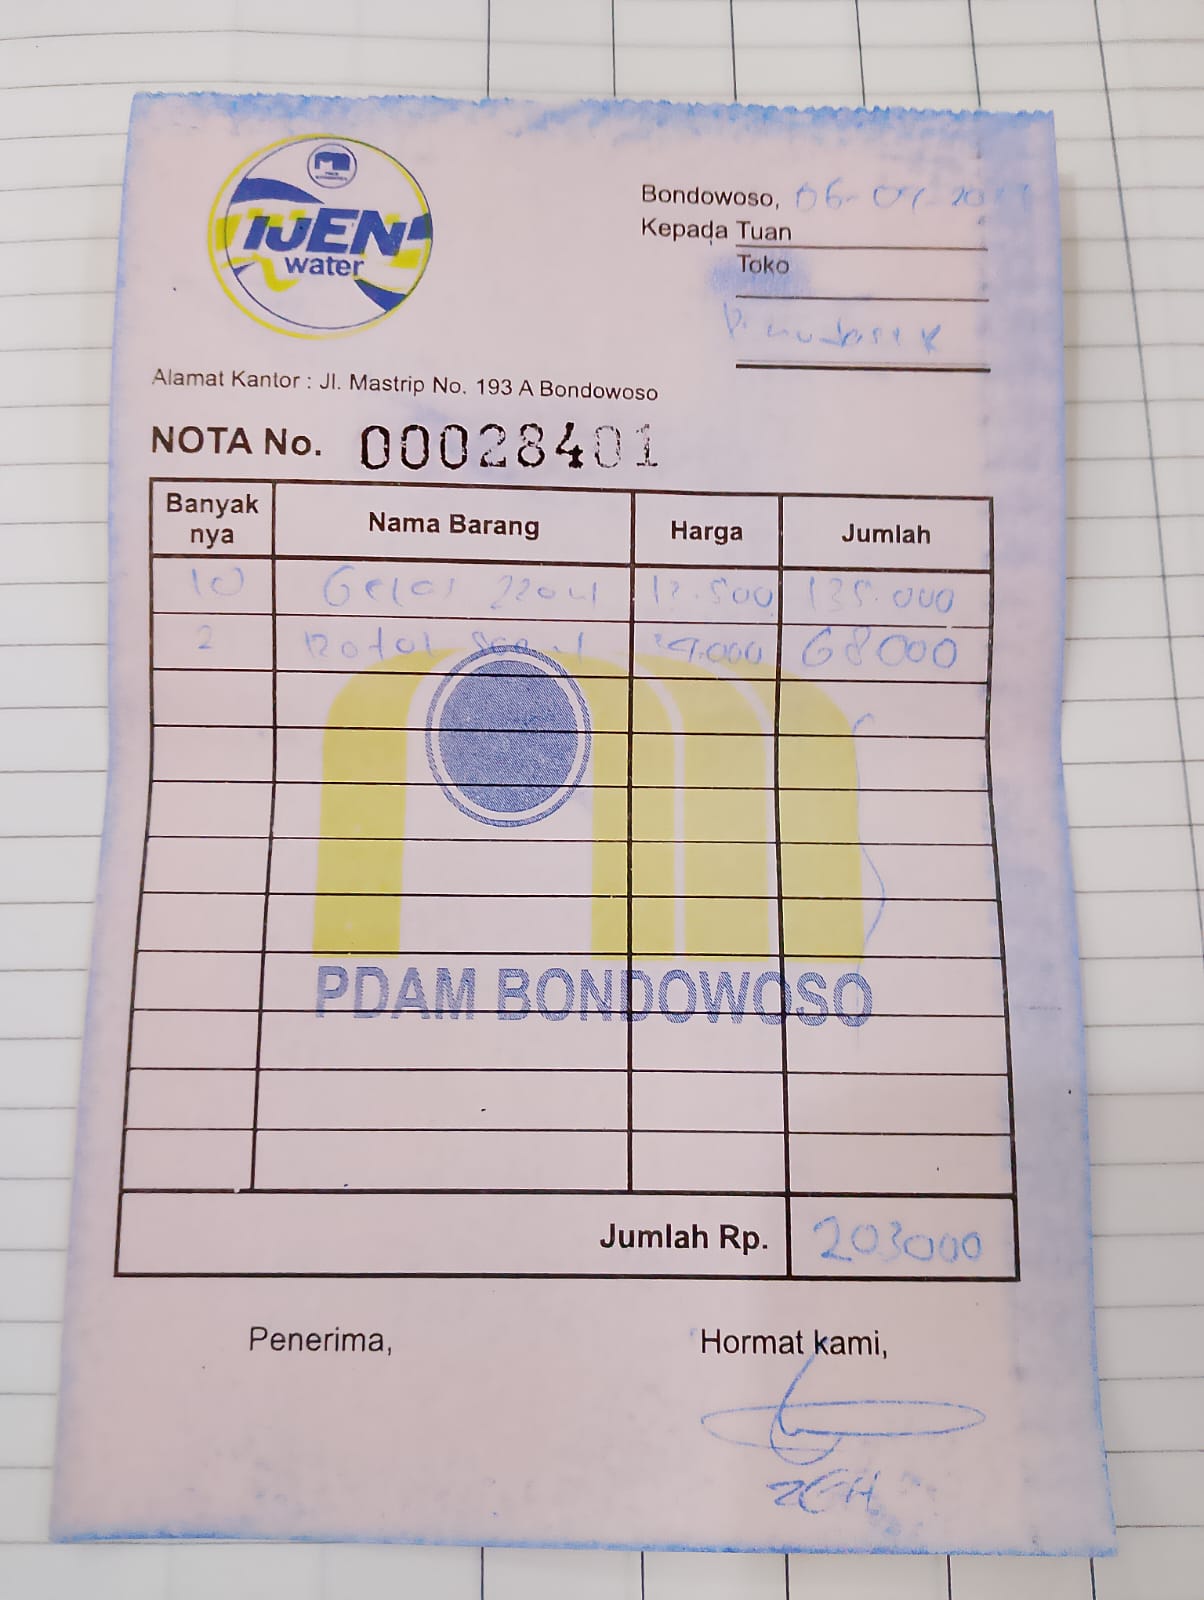 IJEN
water
Bondowoso, 06-07-20
Kepada Tuan
Toko
Alamat Kantor : Jl. Mastrip No. 193 A Bondowoso
NOTA No. 00028401
Banyak nya Nama Barang Harga Jumlah
10 Gelas 220ml 13.500 135.000
2 Botol 34.000 68000
PDAM BONDOWOSO
Jumlah Rp. 203000
Penerima, Hormat kami,